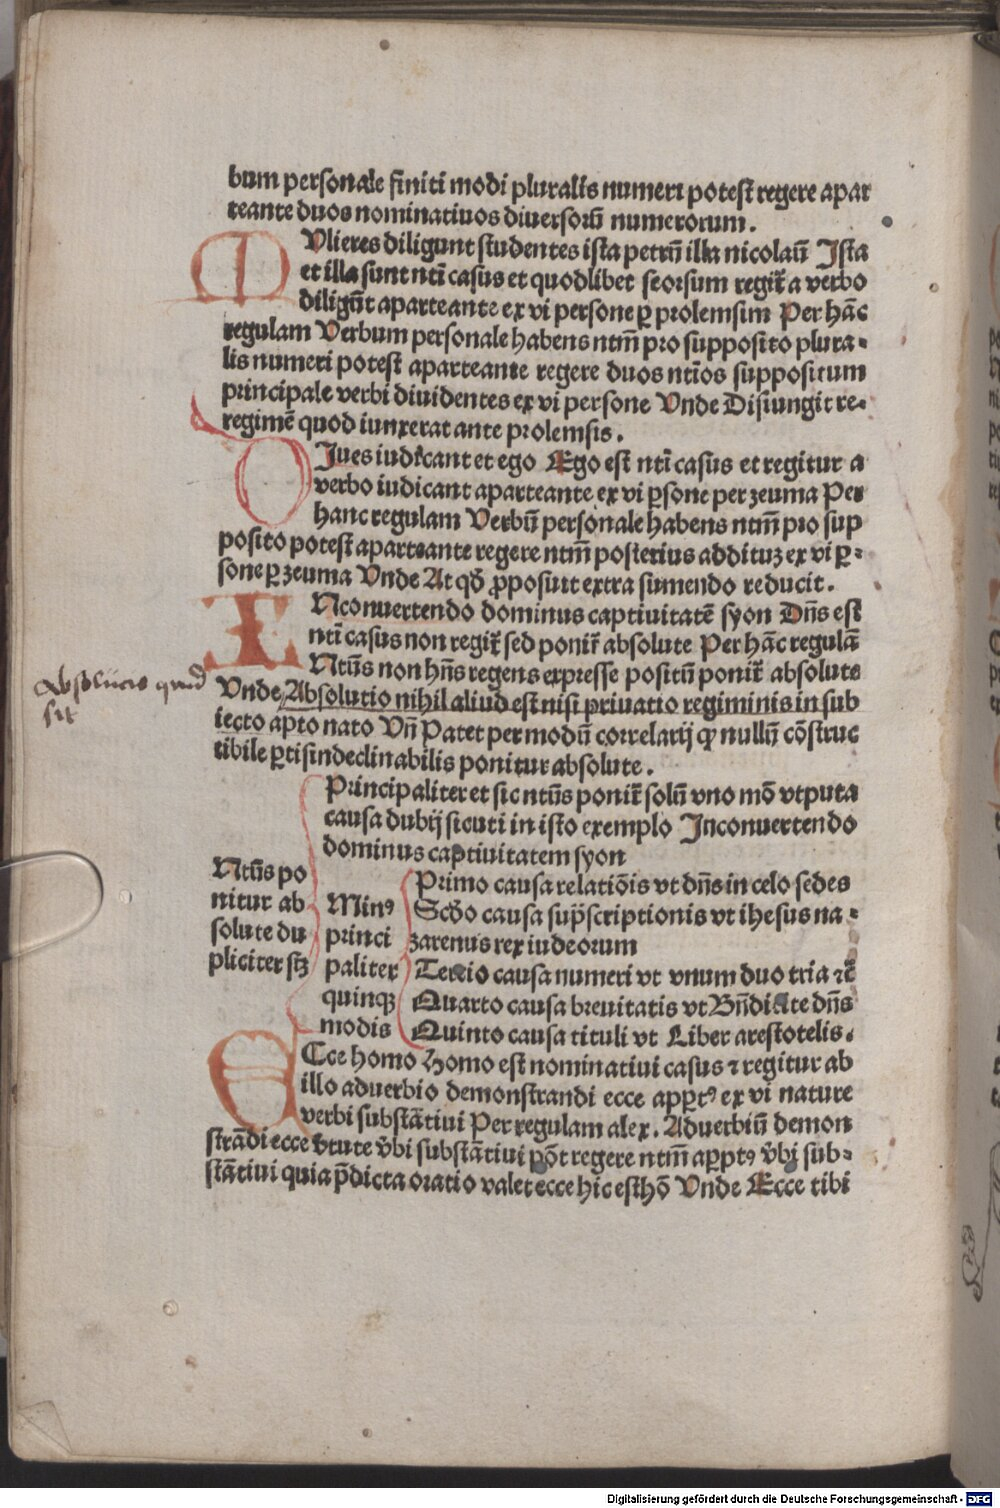 bum personale finiti modi pluralis numeri potest regere apar
teante duos nominatiuos diuersoꝝ numerorum.
MUlieres diligunt studentes ista petrū illa nicolaū Ista
et illa sunt ntī casus et quodlibet seorsum regiť a verbo
diligūt aparteante ex vi persone ꝑ prolemsim Per hāc
regulam Verbum personale habens ntm̄ pro supposito plura-
lis numeri potest aparteante regere duos ntīos suppositum
principale verbi diuidentes ex vi persone Unde Disiungit re-
regimē quod iunxerat ante prolemsis.
OJues iudicant et ego Ego est ntī casus et regitur a
verbo iudicant aparteante ex vi ꝑsone per zeuma Per
hanc regulam Verbū personale habens ntm̄ pro sup
posito potest aparteante regere ntm̄ posterius addituꝫ ex vi ꝑ-
sone ꝑ zeuma Unde At qđ ꝓposuit extra sumendo reducit.
INconuertendo dominus captiuitatē syon Dn̄s est
ntī casus non regiť sed poniť absolute Per hāc regulā
Ntūs non hn̄s regens expresse positū poniť absolute
Unde Absolutio nihil aliud est nisi priuatio regiminis in sub
iecto apto nato Vn̄ Patet per modū correlarij ꝙ nullū cōstruc
tibile ꝑtis indeclinabilis ponitur absolute.
Absolucio quid
sit
Principaliter et sic ntūs poniť solū vno mō vtputa
causa dubij sicuti in isto exemplo Inconuertendo
dominus captiuitatem syon
Ntūs po
nitur ab
solute du
pliciter sꝫ
Minꝰ
princi
paliter
quinqꝫ
modis
Primo causa relatiōis vt dn̄s in celo sedes
Scđo causa suꝑscriptionis vt ihesus na-
zarenus rex iudeorum
Tercio causa numeri vt vnum duo tria ⁊c̄
Quarto causa breuitatis vt Bn̄dicite dn̄s
Quinto causa tituli vt Liber arestotelis.
ECce homo Homo est nominatiui casus ⁊ regitur ab
illo aduerbio demonstrandi ecce apꝑtꝰ ex vi nature
verbi substātiui Per regulam alex. Aduerbiū demon
strādi ecce v̄tute v̄bi substātiui pōt regere ntm̄ aꝑptꝰ v̄bi sub-
stātiui quia p̄dicta oratio valet ecce hic est hō Unde Ecce tibi
Digitalisierung gefördert durch die Deutsche Forschungsgemeinschaft - DFG